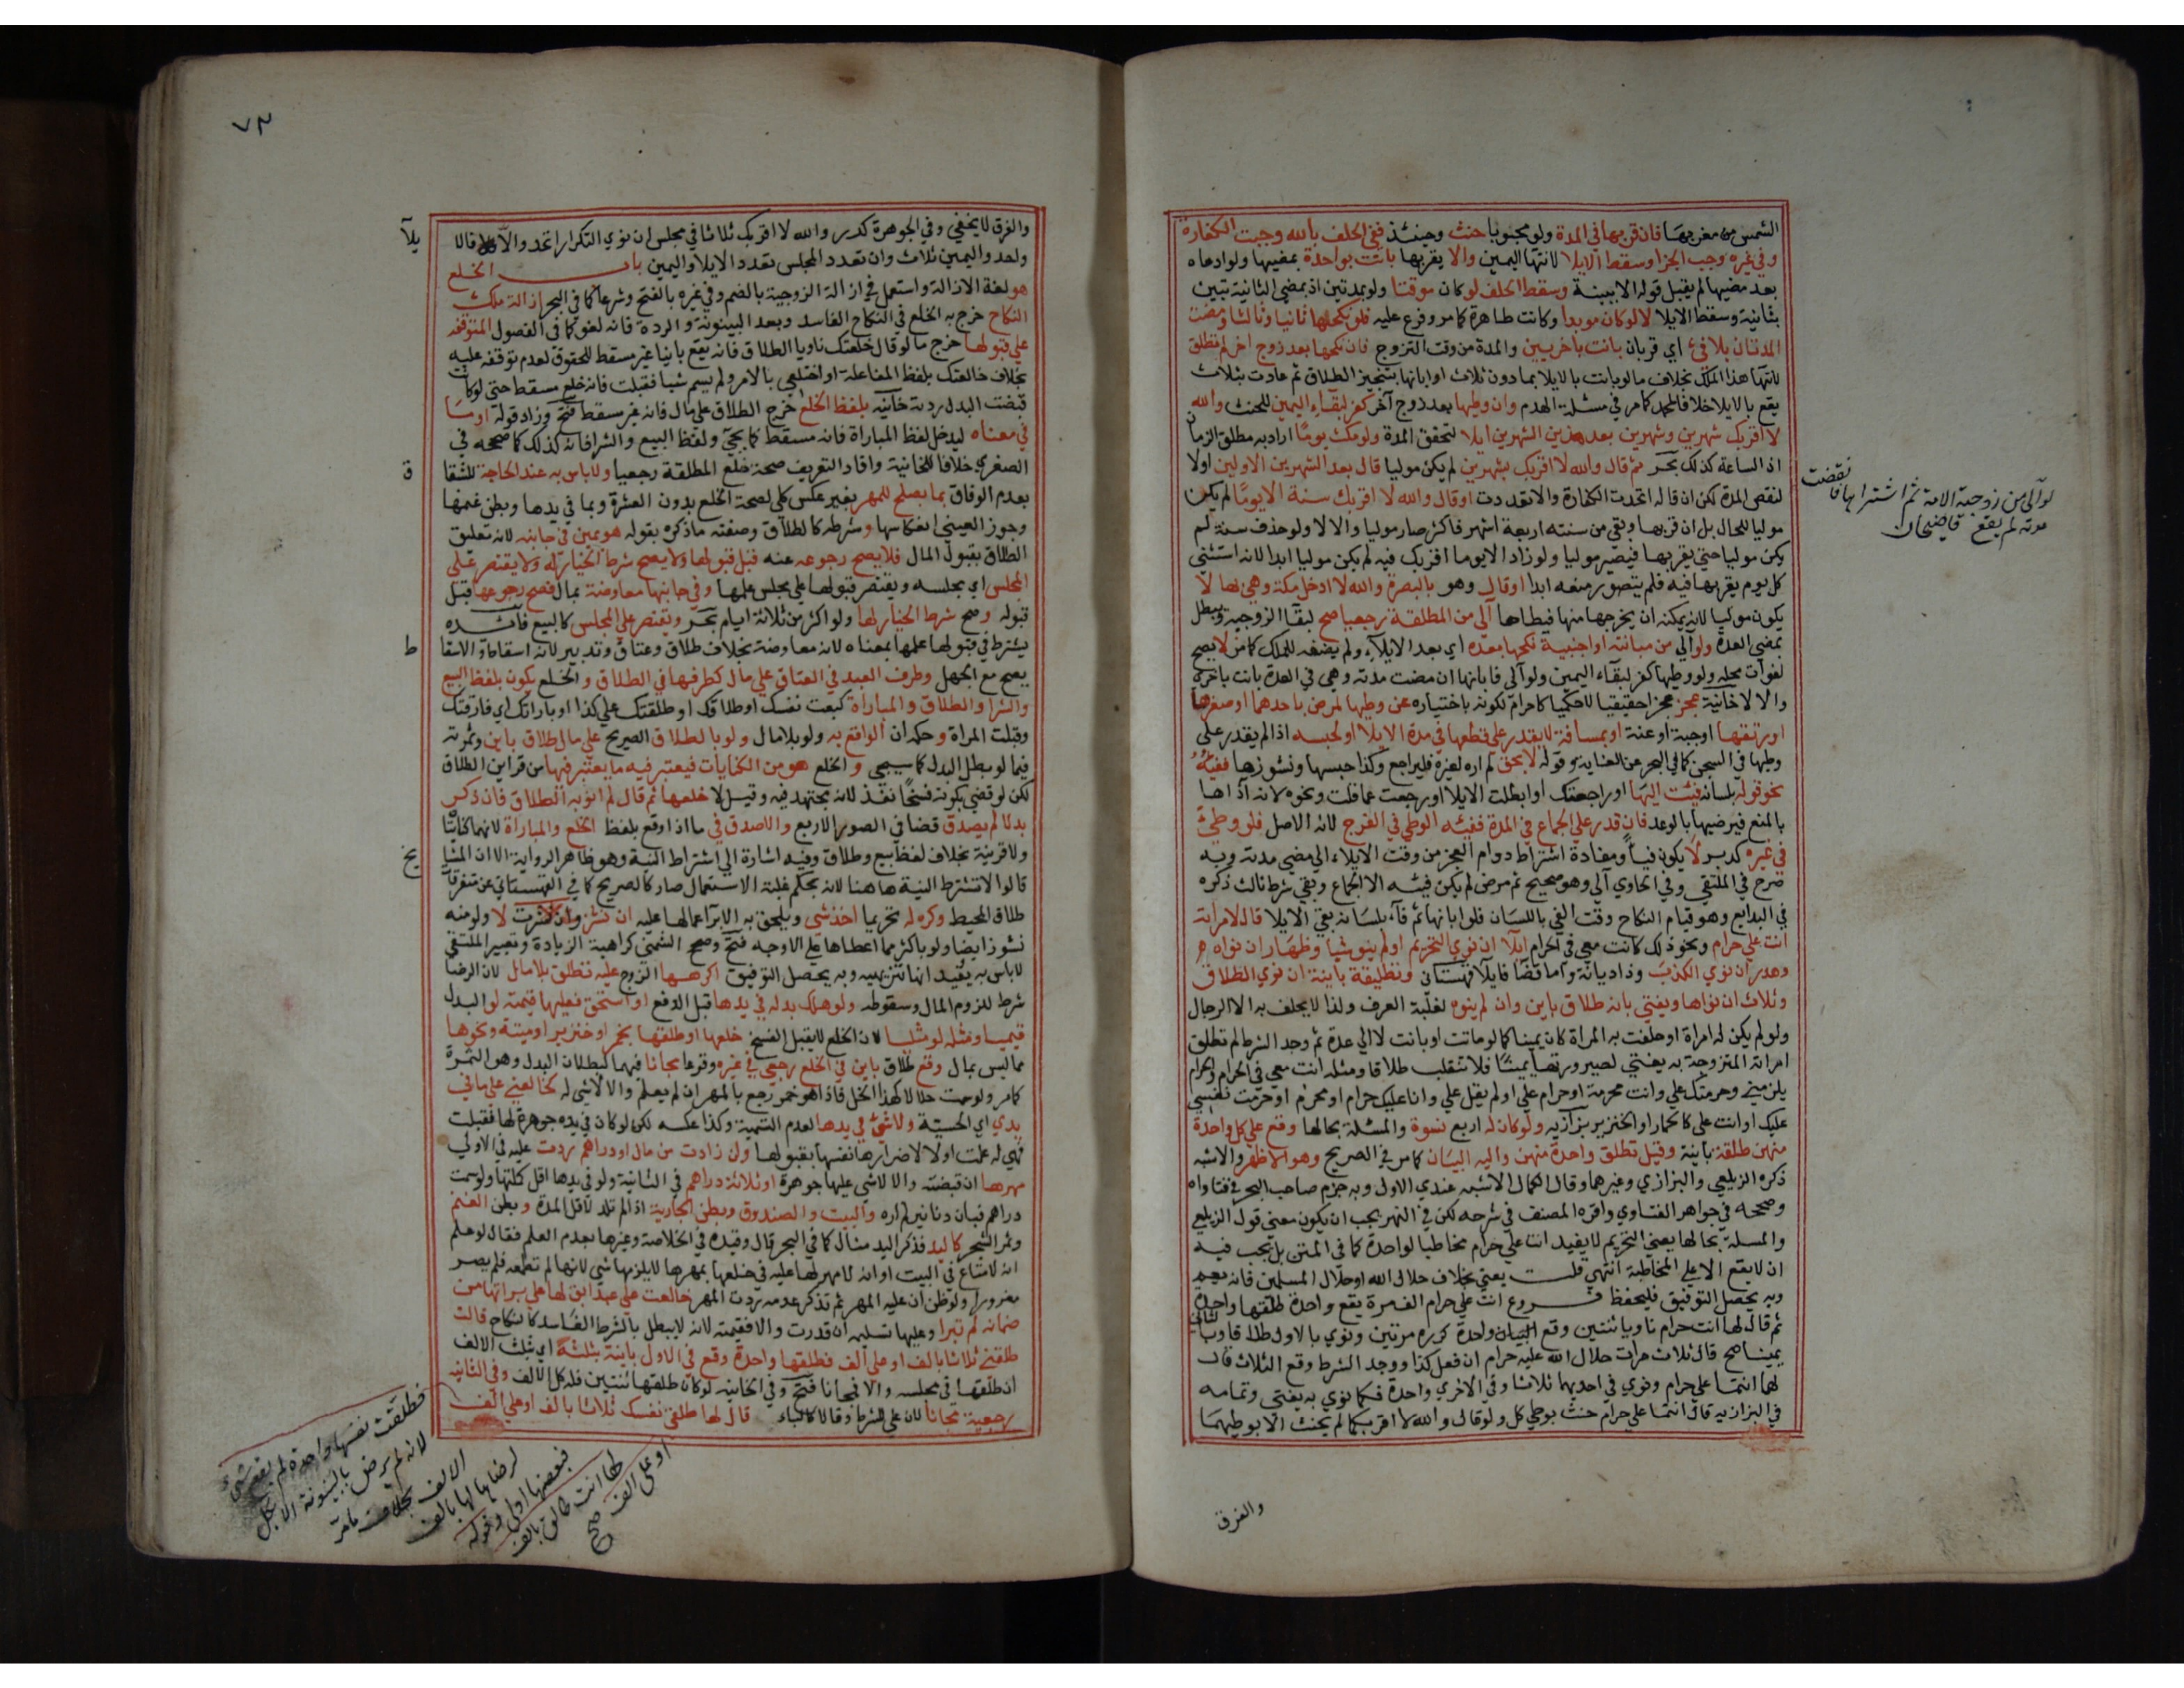 الشمس من مغربها فان قربها في المدة ولو مجنونا حنث وحينئذ ففي الحلف بالله وجبت الكفارة
وفي غيره وجب الجزا وسقط الايلا لانتها اليمين والا يقربها بانت بواحدة بمضيها ولو ادعاه
بعد مضيها لم يقبل قوله الا ببينة وسقط الحلف لو كان موقتا ولو بمدتين اذ بمضي الثانية تبين
بثانية وسقط الايلا لا لو كان موبدا وكانت طاهرة كما مر وفرع عليه فلو نكحها ثانيا وثالثا ومضت
المدتان بلا فئ اي قربان بانت باخريين والمدة من وقت التزوج فان نكحها بعد زوج اخر لم تطلق
لانتها هذا الملك بخلاف ما لو بانت بالايلا بما دون ثلاث او ابانها بتنجيز الطلاق ثم عادت بثلاث
يقع بالايلا خلافا لمحمد كما مر في مسئلة الهدم وان وطيها بعد زوج آخر كفر لبقاء اليمين للحنث والله
لا اقربك شهرين وشهرين بعد هذين الشهرين ايلا لتحقق المدة ولو مكث يوما اراد به مطلق الزمان
اذ الساعة كذلك بحر ثم قال والله لا اقربك شهرين لم يكن موليا قال بعد الشهرين الاولين اولا
لنقص المدة لكن ان قاله اتحدت الكفارة والا تعددت او قال والله لا اقربك سنة الا يوما لم يكن
موليا للحال بل ان قربها وبقي من سنته اربعة اشهر فاكثر صار موليا والا لا ولو حذف سنة لم
يكن موليا حتي يقربها فيصير موليا ولو زاد الا يوما اقربك فيه لم يكن موليا ابدا لانه استثني
كل يوم يقربها فيه فلم يتصور منعه ابدا او قال وهو بالبصرة والله لا ادخل مكة وهي بها لا
يكون موليا لانه يمكنه ان يخرجها منها فيطاها آلي من المطلقة رجعيا صح لبقا الزوجية ويبطل
بمضي العدة ولو آلي من مبانته او اجنبية نكحها بعده اي بعد الايلاء ولم يضفه للملك كما مر لا يصح
لفوات محله ولو وطيها كفر لبقاء اليمين ولو آلي فابانها ان مضت مدته وهي في العدة بانت باخري
والا لا خانية عجز عجزا حقيقيا لا حكميا كاحرام لكونه باختياره عن وطيها لمرض باحدهما او صغرها
او رتقها او جبه او عنة او بمسافة لا يقدر علي قطعها في مدة الايلا او لحبسه اذا لم يقدر علي
وطيها في السجن كما في البحر عن الغاية وقوله لا بحق لم اره لغيره فليراجع وكذا حبسها ونشوزها ففيئه
نحو قوله بلسانه فئت اليها او راجعتك او ابطلت الايلا او رجعت عما قلت ونحوه لانه اذاها
بالمنع فيرضيها بالوعد فان قدر علي الجماع في المدة ففيئه الوطي في الفرج لانه الاصل فلو وطئ
في غيره كدبر لا يكون فيأ ومفادة اشتراط دوام العجز من وقت الايلاء الي مضي مدته وبه
صرح في الملتقي وفي الحاوي آلي وهو صحيح ثم مرض لم يكن فيئه الا الجماع وبقي شرط ثالث ذكره
في البدايع وهو قيام النكاح وقت الفي باللسان فلو ابانها ثم فآء بلسانه بقي الايلا قال لامراته
انت علي حرام ونحو ذلك كانت معي في الحرام ايلآ ان نوي التحريم او لم ينو شيا وظهار ان نواه
وهدر ان نوي الكذب وذا ديانة واما قضا فايلا قهستاني وتطليقة باينة ان نوي الطلاق
وثلاث ان نواها ويفتي بانه طلاق باين وان لم ينوه لغلبة العرف ولذا لا يحلف به الا الرجال
ولو لم يكن له امراة او حلفت به المراة كان يمينا كما لو ماتت او بانت لا الي عدة ثم وجد الشرط لم تطلق
امراته المتزوجة به يفتي لصيرورتها يمينا فلا تنقلب طلاقا ومثله انت معي في الحرام والحرام
يلزمني وحرمتك علي وانت محرمة او حرام علي او لم يقل علي وانا عليك حرام او محرم او حرمت نفسي
عليك او انت علي كالحمار او الخنزير بزازيه ولو كان له اربع نسوة والمسئلة بحالها وقع علي كل واحدة
منهن طلقة باينة وقيل تطلق واحدة منهن واليه البيان كما مر في الصريح وهو الاظهر والاشبه
ذكره الزيلعي والبزازي وغيرهما وقال الكمال الاشبه عندي الاول وبه جزم صاحب البحر في فتاواه
وصححه في جواهر الفتاوي واقره المصنف في شرحه لكن في النهر يجب ان يكون معني قول الزيلعي
والمسلة بحالها يعني التحريم لا بقيد انت علي حرام مخاطبا لواحدة كما في المتن بل يجب فيه
ان لا يقع الا علي المخاطبة انتهي قلت يعني بخلاف حلال الله او حلال المسلمين فانه يعم
وبه يحصل التوفيق فليحفظ فروع انت علي حرام الف مرة يقع واحدة طلقها واحدة
ثم قال لها انت حرام ناويا ثنتين وقع واحدة كرره مرتين ونوي بالاول طلاقا وبالثاني
يمينا صح قال ثلاث مرات حلال الله عليه حرام ان فعل كذا ووجد الشرط وقع الثلاث قال
لهما انتما علي حرام ونوي في احديهما ثلاثا وفي الاخري واحدة فكما نوي به يفتي وتمامه
في البزازيه قال انتما علي حرام حنث بوطي كل ولو قال والله لا اقربكما لم يحنث الا بوطيهما
والفرق
لو آلي من زوجته الامة ثم اشتراها فانقضت
مدته لم يقع قاضيخان
٧٣
والفرق لا يخفي وفي الجوهرة كدر والله لا اقربك ثلاثا في مجلس ان نوي التكرار اتحد والا فالايلآ
واحد واليمين ثلاث وان تعدد المجلس تعدد الايلا واليمين باب الخلع
هو لغة الازالة واستعمل في ازالة الزوجية بالضم وفي غيره بالفتح وشرعا كما في البحر ازالة ملك
النكاح خرج به الخلع في النكاح الفاسد وبعد البينونة والردة فانه لغو كما في الفصول المتوقفه
علي قبولها خرج ما لو قال خلعتك ناويا الطلاق فانه يقع باينا غير مسقط للحقوق لعدم توقفه عليه
بخلاف خالعتك بلفظ المفاعلة او اختلعي بالامر ولم يسم شيا فقبلت فانه خلع مسقط حتي لو كانت
قبضت البدل ردته خانيه بلفظ الخلع خرج الطلاق علي مال فانه غير مسقط فتح وزاد قوله او ما
في معناه ليدخل لفظ المباراة فانه مسقط كما يجئ ولفظ البيع والشرا فانه كذلك كما صححه في
الصغري خلافا للخانية وافاد التعريف صحة خلع المطلقة رجعيا ولا باس به عند الحاجة للشقاق
بعدم الوفاق بما يصلح للمهر بغير عكس كلي لصحة الخلع بدون العشرة وبما في يدها وبطن غنمها
وجوز العيني انعكاسها وشرطه كالطلاق وصفته ما ذكره بقوله هو يمين في جانبه لانه تعليق
الطلاق بقبول المال فلا يصح رجوعه عنه قبل قبولها ولا يصح شرط الخيار له ولا يقتصر علي
المجلس اي مجلسه ويقتصر قبولها علي مجلس علمها وفي جانبها معاوضة بمال فصح رجوعها قبل
قبوله وصح شرط الخيار لها ولو اكثر من ثلاثة ايام بحر ويقتصر علي المجلس كالبيع فائده
يشترط في قبولها علمها بمعناه لانه معاوضة بخلاف طلاق وعتاق وتدبير لانه اسقاط والاسقاط
يصح مع الجهل وطرف العبد في العتاق علي مال كطرفها في الطلاق والخلع يكون بلفظ البيع
والشرا والطلاق والمباراة كبعت نفسك او طلاقك او طلقتك علي كذا او باراتك اي فارقتك
وقبلت المراة وحكمه ان الواقع به ولو بلا مال ولو بالطلاق الصريح علي مال طلاق باين وثمرته
فيما لو بطل البدل كما سيجي والخلع هو من الكنايات فيعتبر فيه ما يعتبر فيها من قراين الطلاق
لكن لو قضي بكونه فسخا نفذ لانه مجتهد فيه وقيل لا خلعها ثم قال لم انو به الطلاق فان ذكر
بدلا لم يصدق قضا في الصور الاربع والا صدق في ما اذا وقع بلفظ الخلع والمباراة لانهما كنايتان
ولا قرينة بخلاف لفظ بيع وطلاق وفيه اشارة الي اشتراط النية وهو ظاهر الرواية الا ان المشايخ
قالوا لا تشترط النية هاهنا لانه بحكم غلبة الاستعمال صار كالصريح كما في القهستاني عن متفرقات
طلاق المحيط وكره له تحريما اخذ شئ ويلحق به الابرآ عما لها عليه ان نشز وان نشزت لا ولو منه
نشوز ايضا ولو باكثر مما اعطاها علي الاوجه فتح وصحح الشمني كراهية الزيادة وتعبير الملتقي
لا باس به يفيد انها تنزيهيه وبه يحصل التوفيق اكرهها الزوج عليه تطلق بلا مال لان الرضا
شرط للزوم المال وسقوطه ولو هلك بدله في يدها قبل الدفع او استحق فعليها قيمته لو البدل
قيميا ومثله لو مثليا لان الخلع لا يقبل الفسخ خلعها او طلقها بخمر او خنزير او ميتة ونحوها
مما ليس بمال وقع طلاق باين في الخلع رجعي في غيره وقوعا مجانا فيهما لبطلان البدل وهو الثمرة
كما مر ولو سمت حلالا كهذا الخل فاذا هو خمر رجع بالمهر ان لم يعلم والا لا شي له كخالعني علي ما في
يدي اي الحسية ولا شئ في يدها لعدم التسمية وكذا عكسه لكن لو كان في يده جوهرة لها فقبلت
فهي له علمت اولا لاضرارها نفسها بقبولها وان زادت من مال او دراهم ردت عليه في الاولي
مهرها ان قبضته والا لا شي عليها جوهرة او ثلاثة دراهم في الثانية ولو في يدها اقل كملتها ولو سمت
دراهم فبان دنانير لم اره والبيت والصندوق وبطن الجارية اذا لم تلد لاقل المدة وبطن الغنم
وثمر الشجر كاليد فذكر اليد مثال كما في البحر قال وقيده في الخلاصة وغيرها بعدم العلم فقال لو علم
انه لا متاع في البيت او انه لا مهر لها عليه في خلعها بمهرها لا يلزمها شي لانها لم تطمعه فلم يصر
مغرورا ولو ظن ان عليه المهر ثم تذكر عدمه ردت المهر خالعت علي عبد ابق لها علي برائتها من
ضمانه لم تبرا وعليها تسليمه ان قدرت والا فقيمته لانه لا يبطل بالشرط الفاسد كالنكاح قالت
طلقني ثلاثا بالف او علي الف فطلقها واحدة وقع في الاول باينة بثلثه اي بثلث الالف
ان طلقها في مجلسه والا فمجانا فتح وفي الخانيه لو كان طلقها ثنتين فله كل الالف وفي الثانيه
رجعية مجانا لان علي للشرط وقالا كالباء قال لها طلقي نفسك ثلاثا بالف او علي الف
فطلقت نفسها واحدة لم يقع شئ
لانه لم يرض بالبينونة الا بكل
الالف بخلاف ما مر
لرضاها بها بالف
فبعضها اولي وقوله
لها انت طالق بالف
او علي الف صح